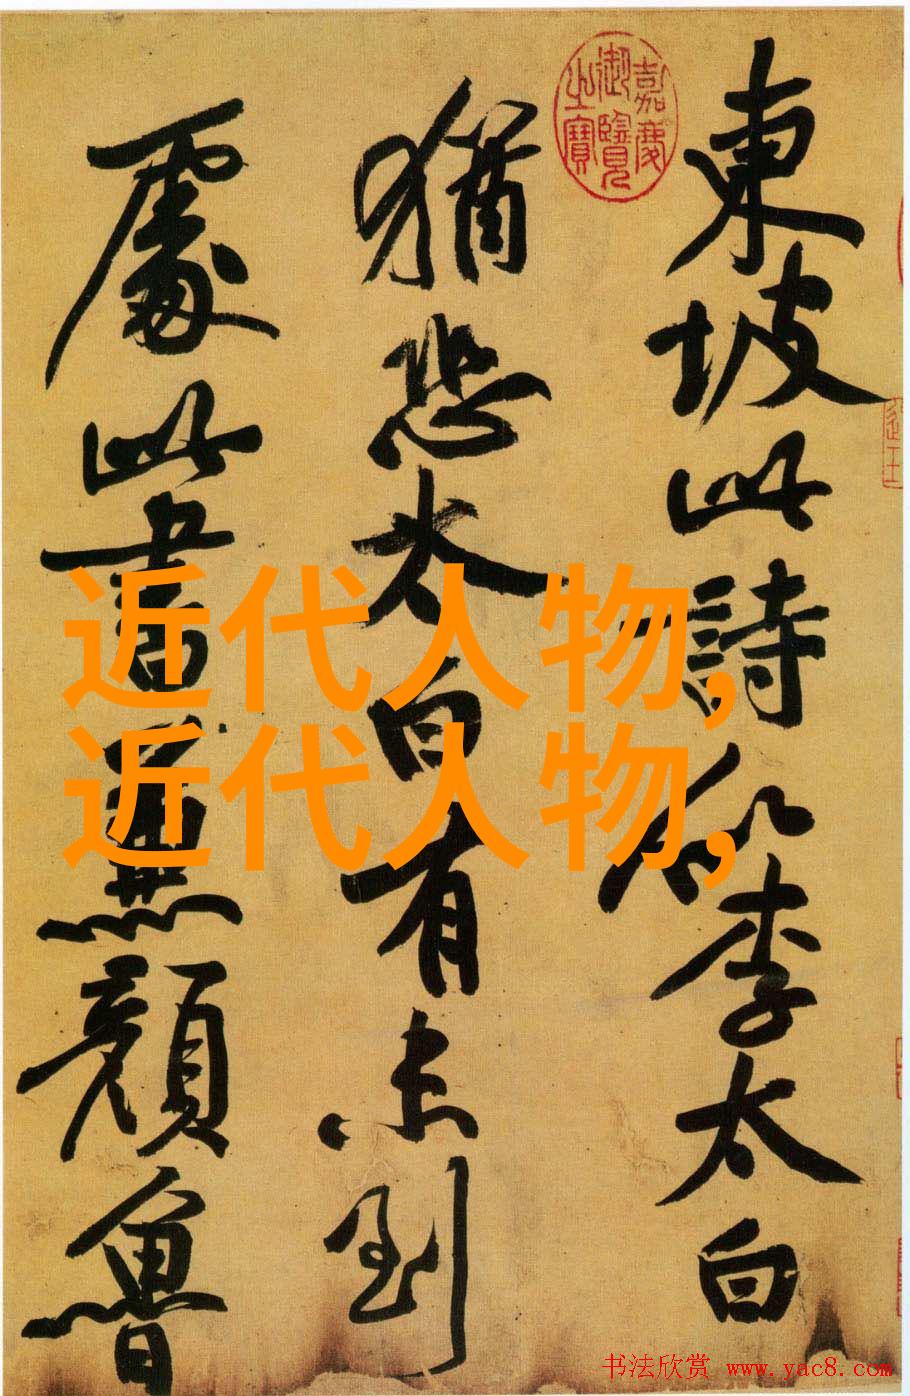 東坡此詩似李太白
猶恐太白有未到
處此書兼顏魯
嘉慶
御覽
之寶
近代人物,
近代人物,
书法欣赏 www.yac8.com